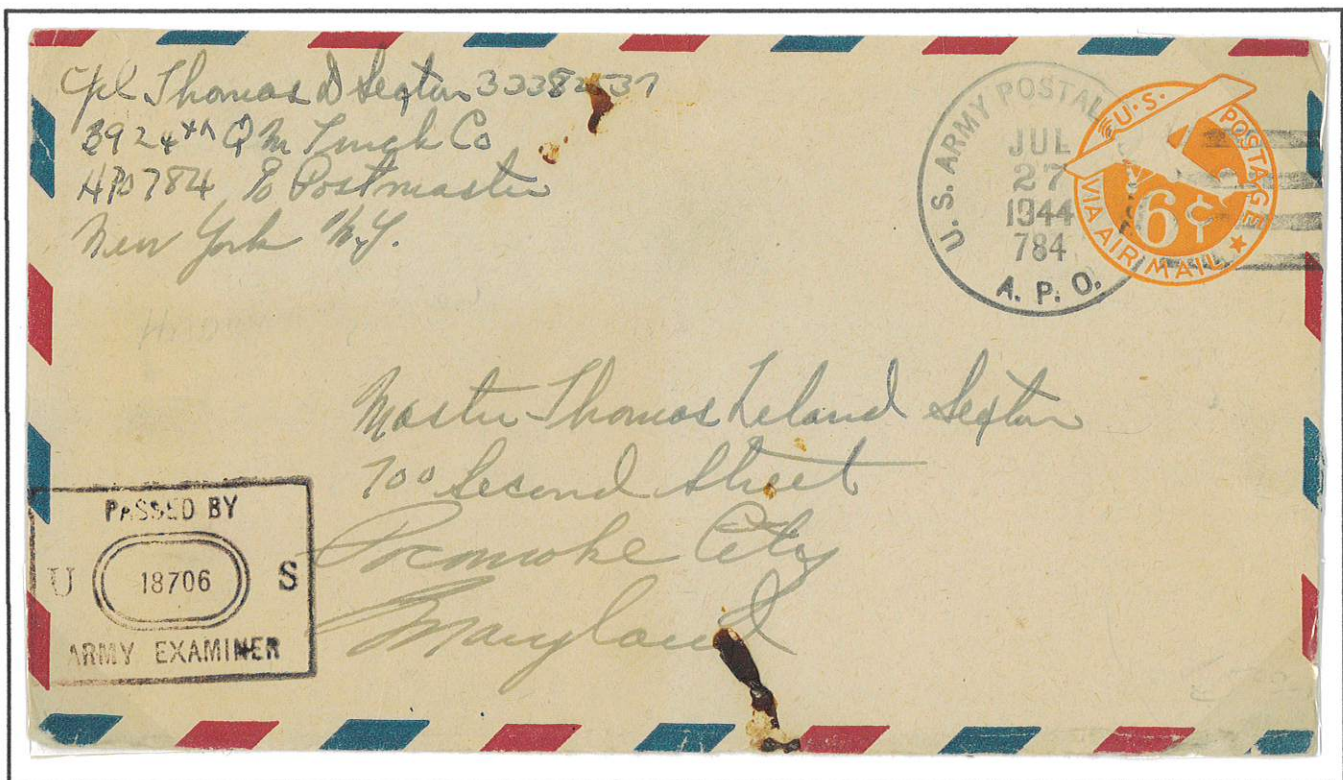 Cpl Thomas D Sexton 33382537
3924th Q M Truck Co
APO 784 % Postmaster
New York N.Y.
U.S. ARMY POSTAL
JUL
27
1944
784
A. P. O.
U.S. POSTAGE
6¢
VIA AIR MAIL
Master Thomas Leland Sexton
700 Second Street
Pocomoke City
Maryland
PASSED BY
U 18706 S
ARMY EXAMINER